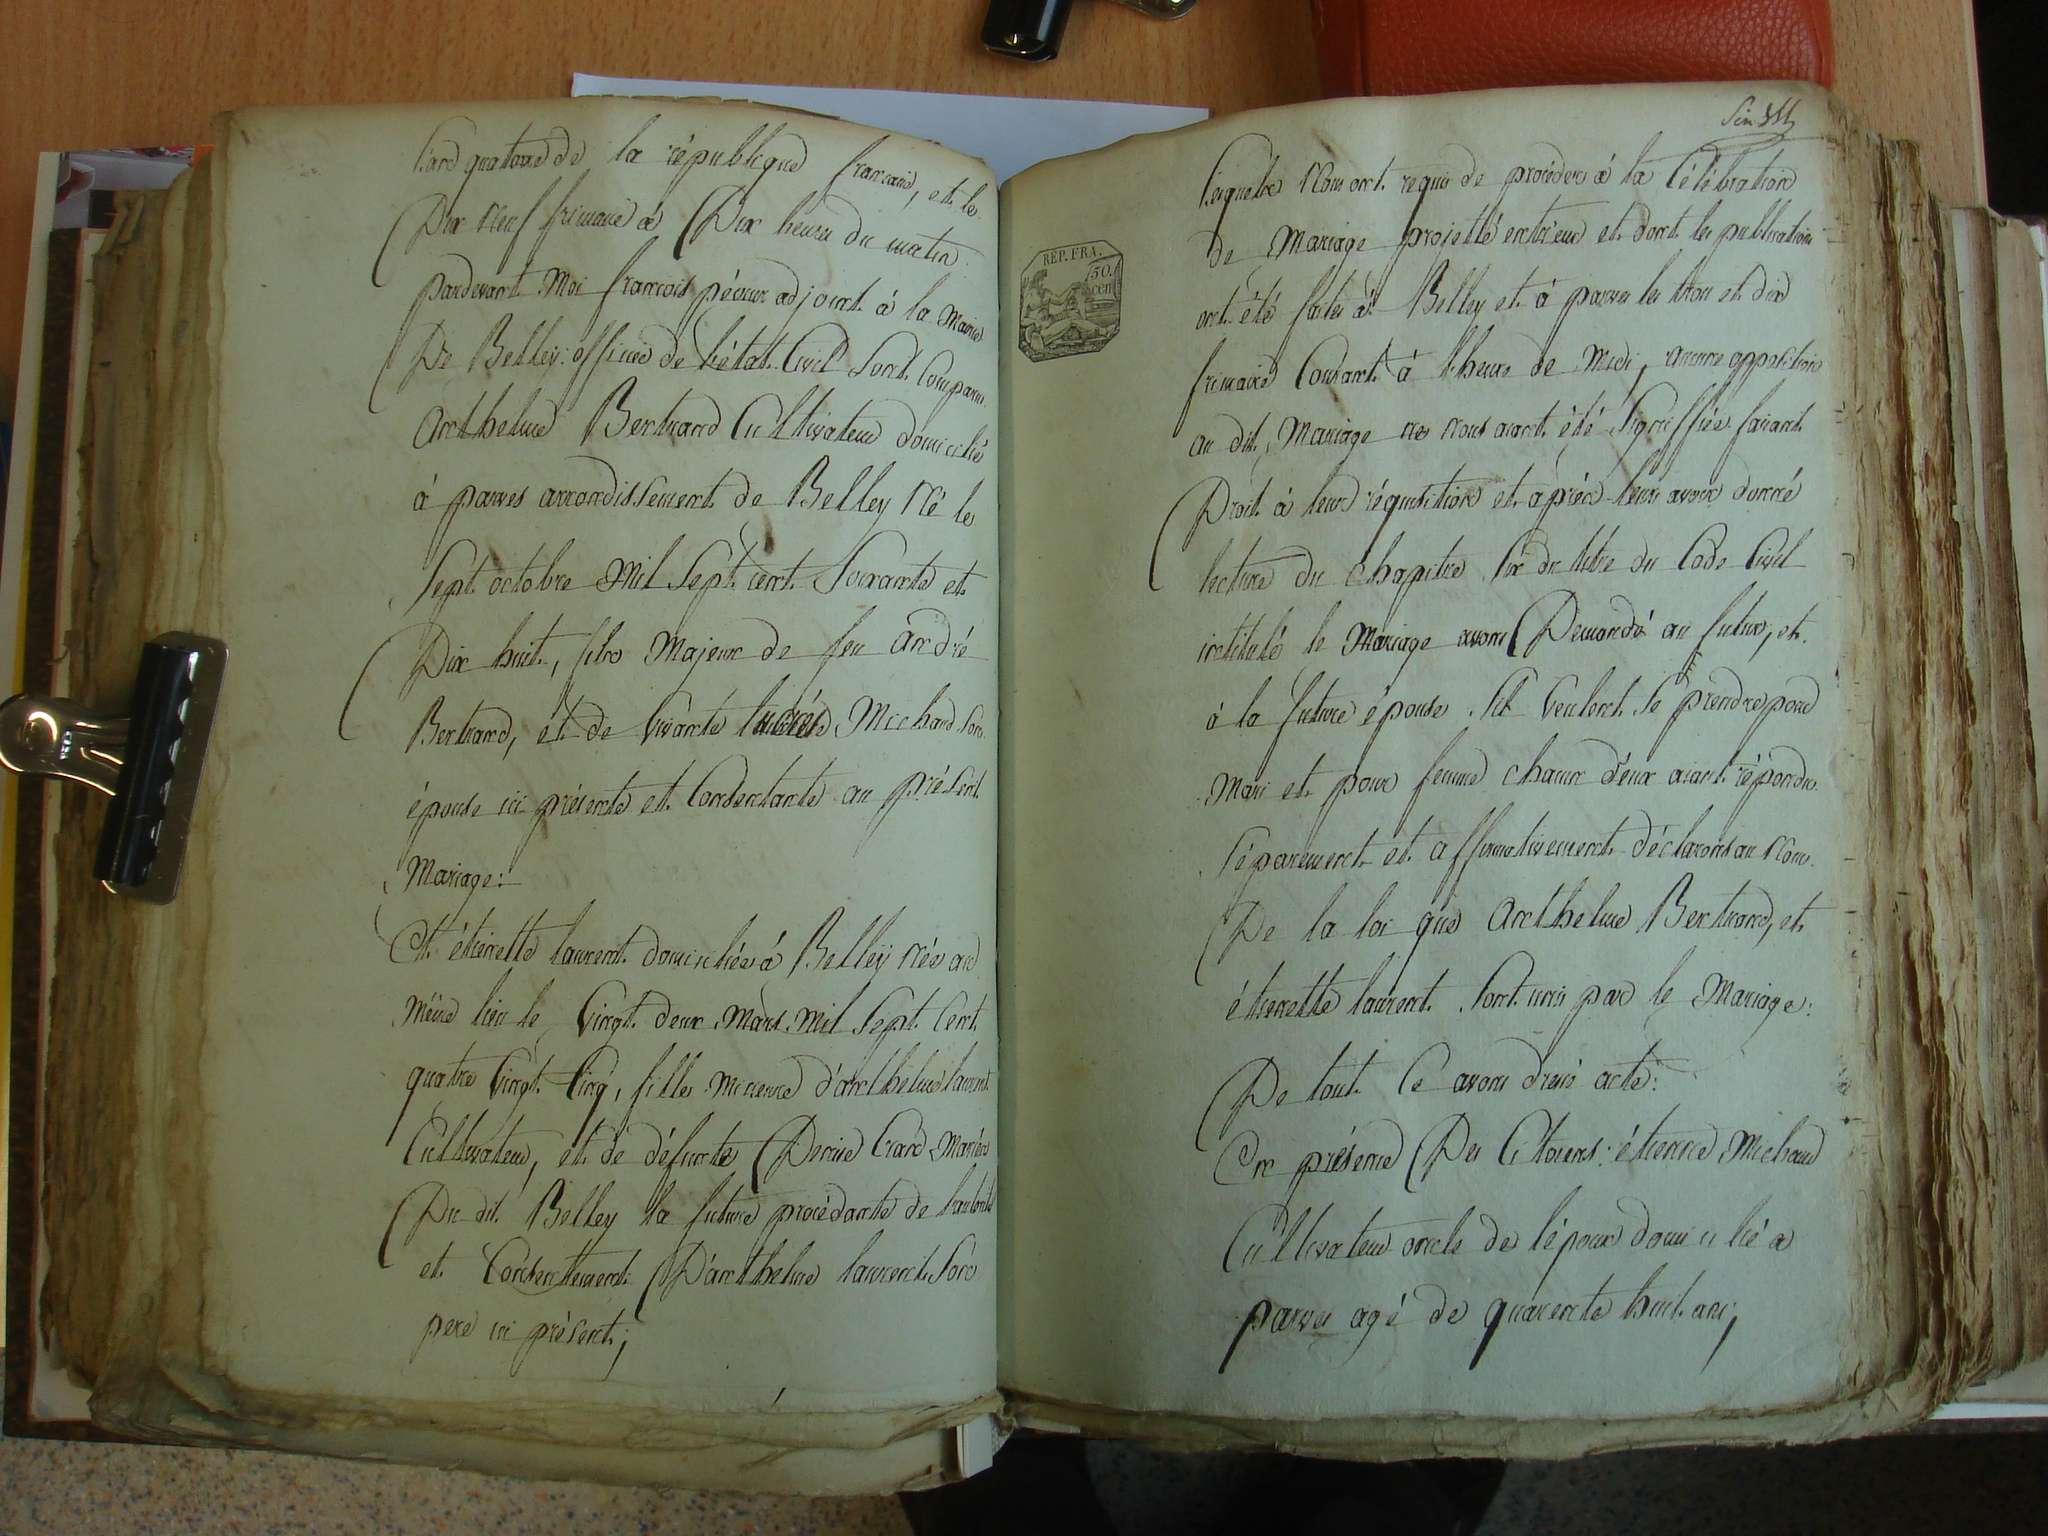 l'and quatorze de la république francaise, et le
Dix neuf frimaire à Dix heures du matin
pardevant Moi francois pécour adjoint à la Mairie
De Belley: officier de l'état Civil sont Comparus
Anthelme Bertrand Cultivateur domicilié
à parves arrondissement de Belley Né le
Sept octobre Mil Sept cent Soixante et
Dix huit, fils Majeur de feu andré
Bertrand, et de Vivante Michaud son
épouse ici présente et Consentante au présent
Mariage:
Et étienette laurent domiciliée à Belley Née au
même lieu le Vingt deux Mars Mil Sept Cent
quatre Vingt Cinq, fille mineure d'anthelme laurent
Cultivateur, et de défunte Denise Mariés
Du dit Belley la future procédante de l'autorité
et Consentement D'anthelme laurent Son
pere ici présent;
REP. FRA.
50.
cen
Lesquels Nous ont requis de procéder à la Célébration
de Mariage projetté entr'eux et dont les publications
ont été faites à Belley et à parves les trois et dix
frimaire Courant à l'heure de Midi, aucune opposition
au dit Mariage ne Nous aiant été Signiffiée faisant
Droit à leur réquisition et après leur avoir donné
lecture du chapitre Six du titre du Code Civil
intitulé le Mariage avons Demandé au futur, et
à la future épouse s'ils veulent se prendre pour
Mari et pour femme chacun d'eux aiant répondu
Séparement et affirmativement déclarons au Nom
De la loi que Anthelme Bertrand, et
étienette laurent Sont unis par le Mariage:
De tout Ce avons dressé acte:
En présence Des Citoiens: étienne Michaud
Cultivateur oncle de l'époux domicilié a
parves agé de quarente huit ans;